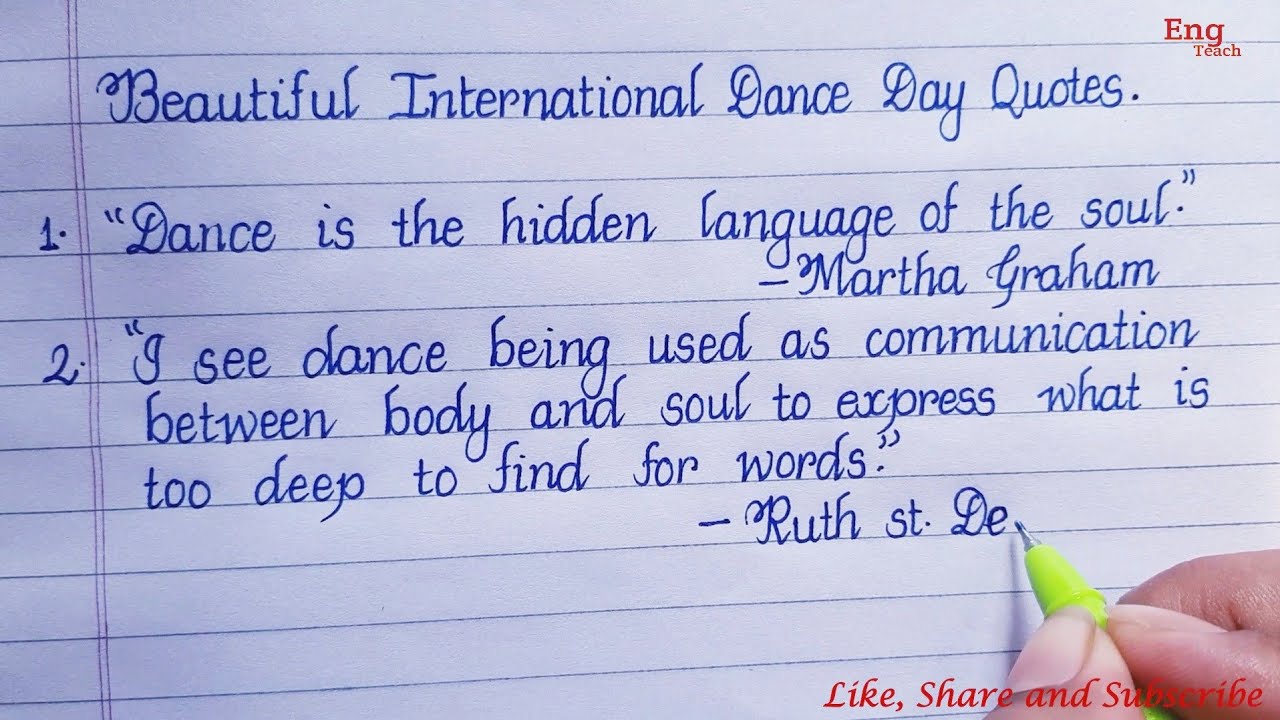 Eng
Teach
Beautiful International Dance Day Quotes.
1. “Dance is the hidden language of the soul.”
– Martha Graham
2. “I see dance being used as communication
between body and soul to express what is
too deep to find for words.”
– Ruth st. De
Like, Share and Subscribe